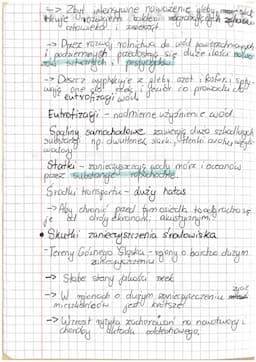 -> Zbyt intensywne nawożenie gleby
człowieka i zwierząt
-> Przez rozwój rolnictwa do wód powierzchniowych
i podziemnych przedostają się duże ilości nawo-
zów sztucznych i pestycydów
-> Deszcz wypłukuje z gleby azot i fosfor i spły-
wają one do rzek i jezior co prowadzi do
eutrofizacji wód
Eutrofizacja - nadmierne użyźnienie wód.
Spaliny samochodowe zawierają dużo szkodliwych
substancji np. dwutlenek siarki, tlenki azotu,
Statki - zanieczyszczają wody mórz i oceanów
przez substancje ropopochodne.
Środki transportu - duży hałas
-> Aby chronić przed tym osiedla to odgradza się
je od drogi ekranami akustycznymi
• Skutki zanieczyszczenia środowiska
- Tereny Górnego Śląska - rejony o bardzo dużym
zanieczyszczeniu
-> Słabe stany jakości rzek
-> W miejscach o dużym zanieczyszczeniu życie
mieszkańców jest krótsze
-> Wzrost ryzyka zachorowań na nowotwory i
choroby układu oddechowego.